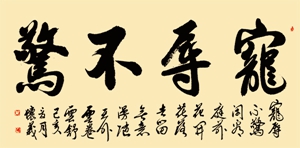 寵辱不驚
寵辱
不驚
閑看
庭前
花開
花落
去留
無意
漫隨
天外
雲卷
雲舒
己亥